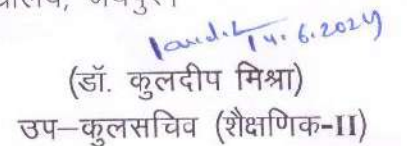 14.6.2024
(डॉ. कुलदीप मिश्रा)
उप–कुलसचिव (शैक्षणिक-II)